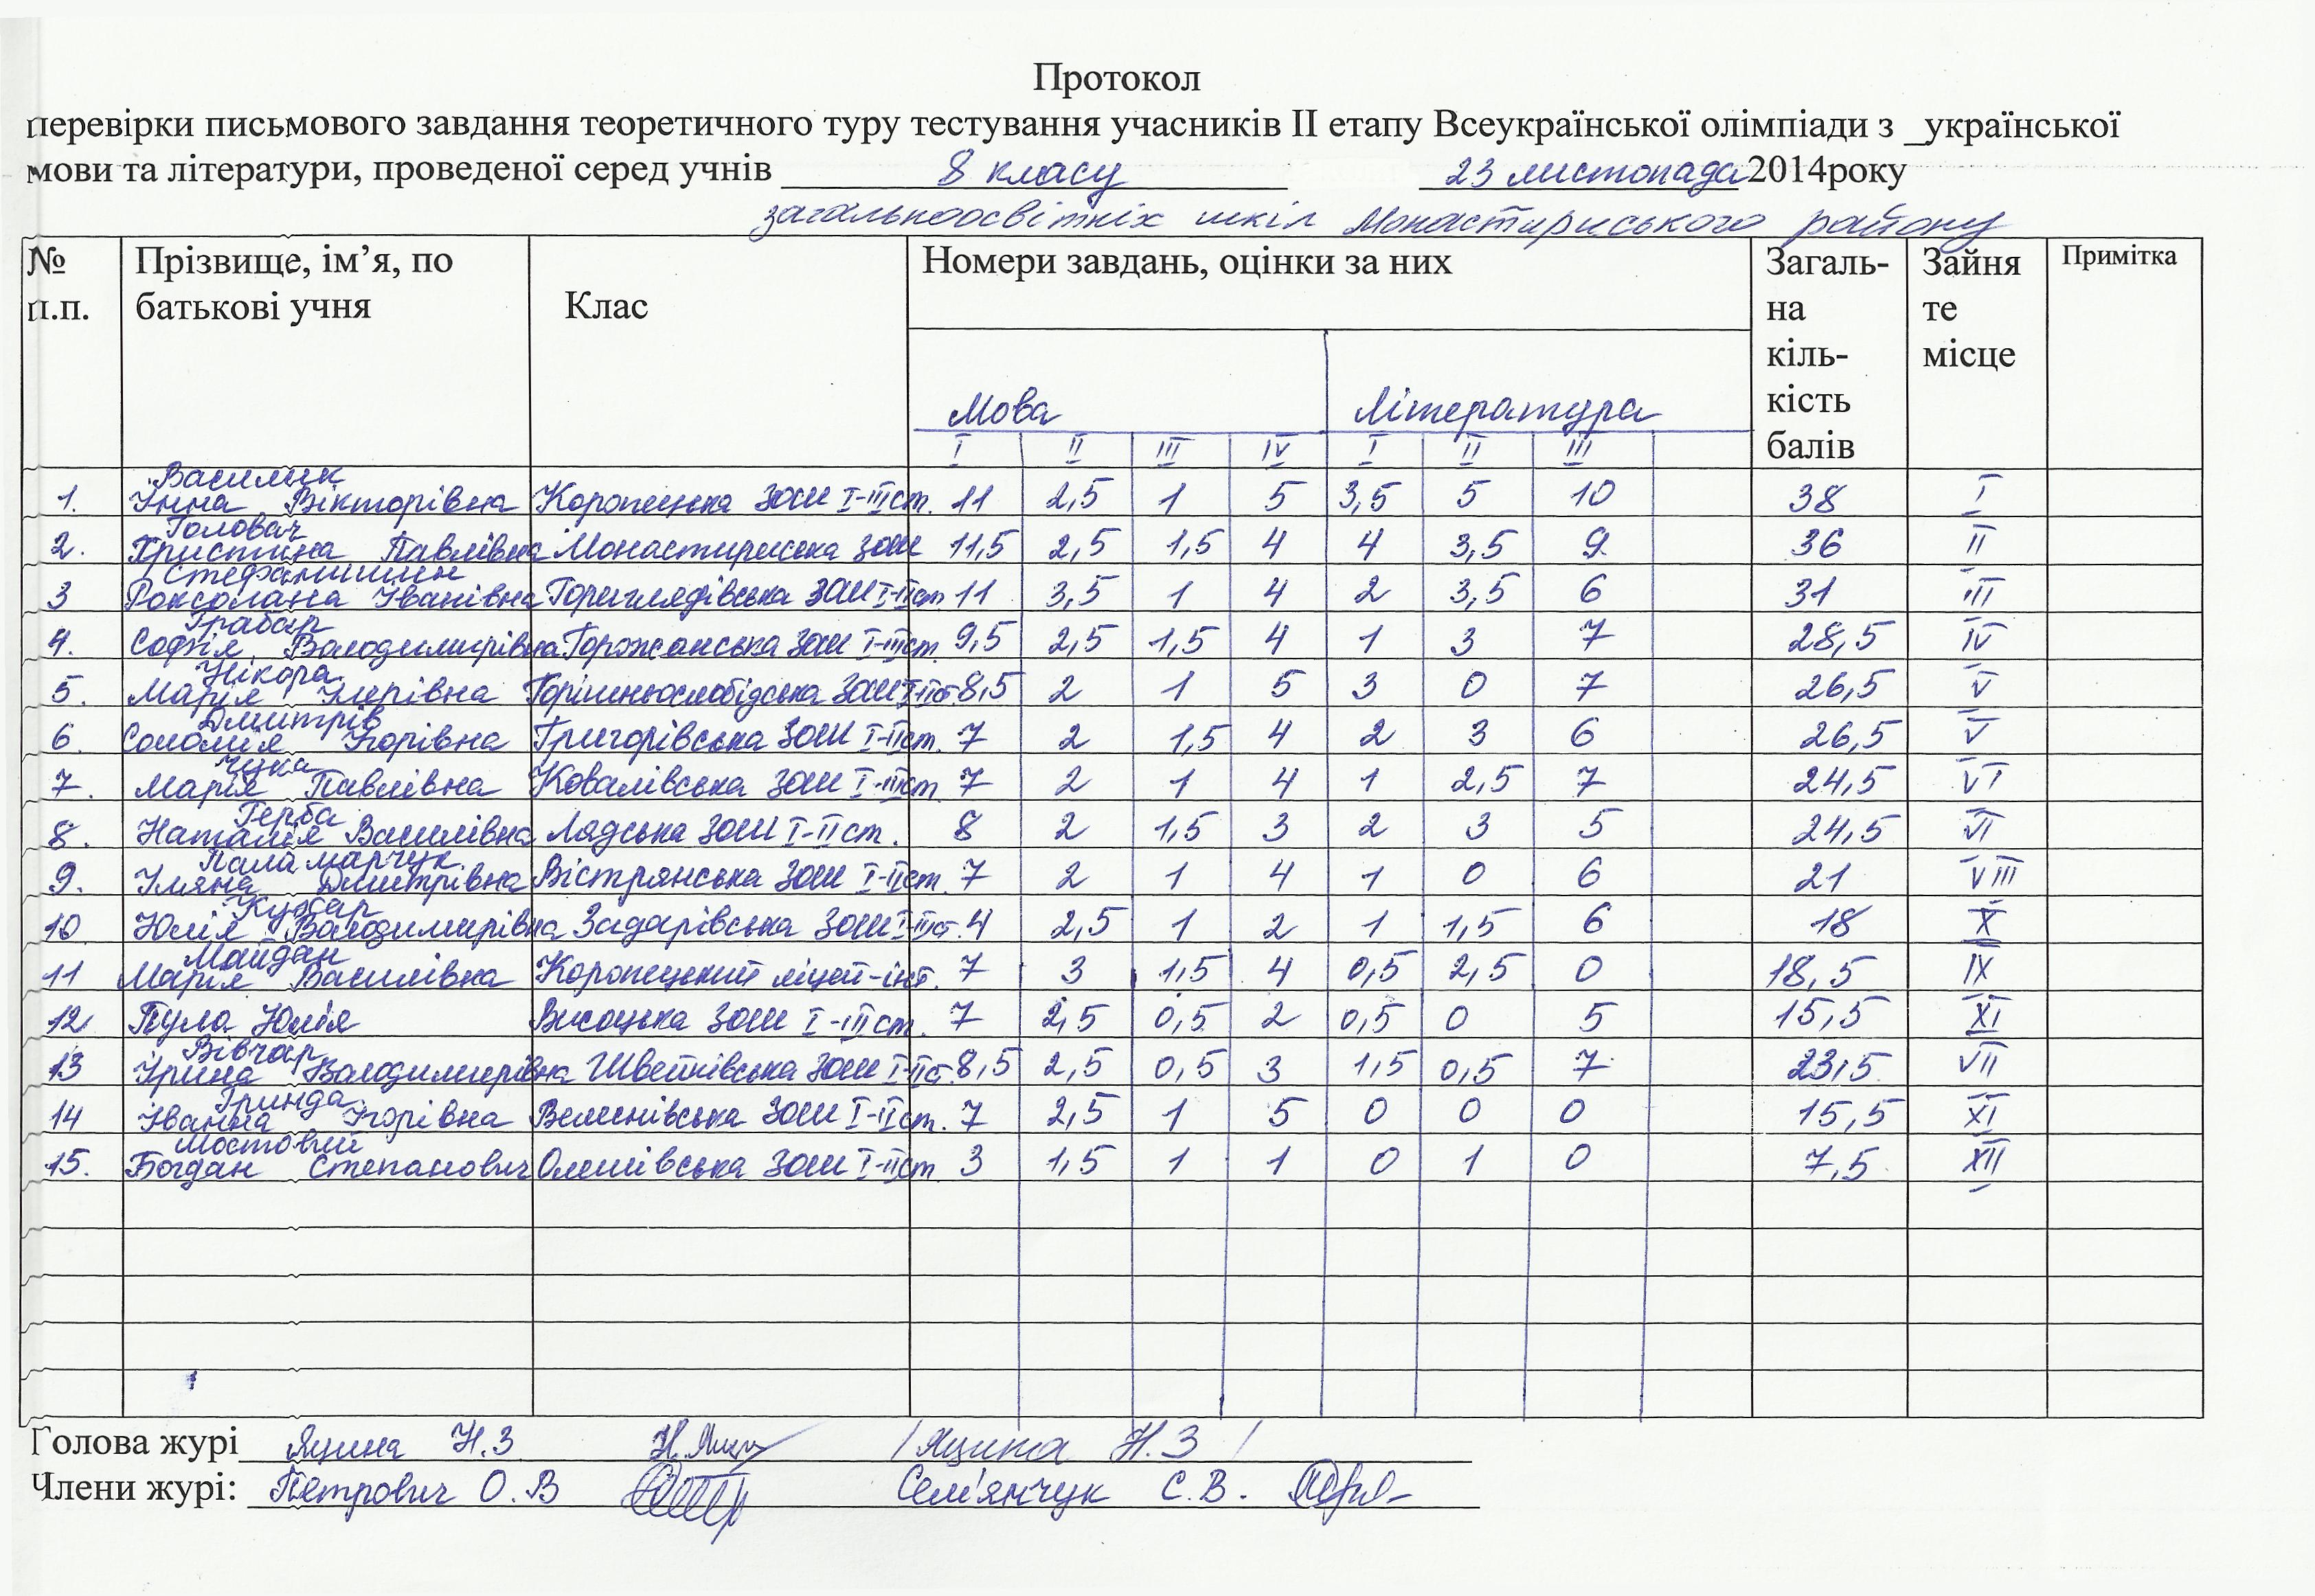 Протокол
перевірки письмового завдання теоретичного туру тестування учасників ІІ етапу Всеукраїнської олімпіади з _української
мови та літератури, проведеної серед учнів 8 класу 23 листопада 2014року
загальноосвітніх шкіл Монастириського району
№ п.п. Прізвище, ім’я, по батькові учня Клас Номери завдань, оцінки за них Загаль-на кіль-кість балів Зайня те місце Примітка
Мова Література
I II III IV I II III
Василик
1. Інна Вікторівна Коропецька ЗОШ I-IIIст. 11 2,5 1 5 3,5 5 10 38 I
Головач
2. Христина Павлівна Монастириська ЗОШ 11,5 2,5 1,5 4 4 3,5 9 36 II
Стефанишин
3 Роксолана Іванівна Горигляდівська ЗОШ I-IIст 11 3,5 1 4 2 3,5 6 31 III
Грабар
4. Софія Володимирівна Горожанська ЗОШ I-IIIст. 9,5 2,5 1,5 4 1 3 7 28,5 IV
Нікора
5. Марія Ігорівна Горішньослобідська ЗОШ I-IIст 8,5 2 1 5 3 0 7 26,5 V
Дмитрів
6. Соломія Ігорівна Григорівська ЗОШ I-IIст. 7 2 1,5 4 2 3 6 26,5 V
7. Марія Павлівна Ковалівська ЗОШ I-IIIст. 7 2 1 4 1 2,5 7 24,5 VI
Герба
8. Наталія Василівна Лядська ЗОШ I-IIст. 8 2 1,5 3 2 3 5 24,5 VI
Паламарчук
9. Уляна Дмитрівна Вістрянська ЗОШ I-IIст. 7 2 1 4 1 0 6 21 VIII
10. Юлія Володимирівна Задарівська ЗОШ I-IIст. 4 2,5 1 2 1 1,5 6 18 X
Майдан
11 Марія Василівна Коропецький ліцей-інт. 7 3 1,5 4 0,5 2,5 0 18,5 IX
12. Пула Юлія Висоцька ЗОШ I-IIIст. 7 2,5 0,5 2 0,5 0 5 15,5 XI
Вівчар
13 Ірина Володимирівна Швейківська ЗОШ I-IIст. 8,5 2,5 0,5 3 1,5 0,5 7 23,5 VII
Гринда
14 Іванна Ігорівна Велеснівська ЗОШ I-IIст. 7 2,5 1 5 0 0 0 15,5 XI
Мостовий
15. Богдан Степанович Олешівська ЗОШ I-IIст. 3 1,5 1 1 0 1 0 7,5 XII
Голова журі Яцина Н.З / Яцина Н.З /
Члени журі: Петрович О.В Сем'янчук С.В.